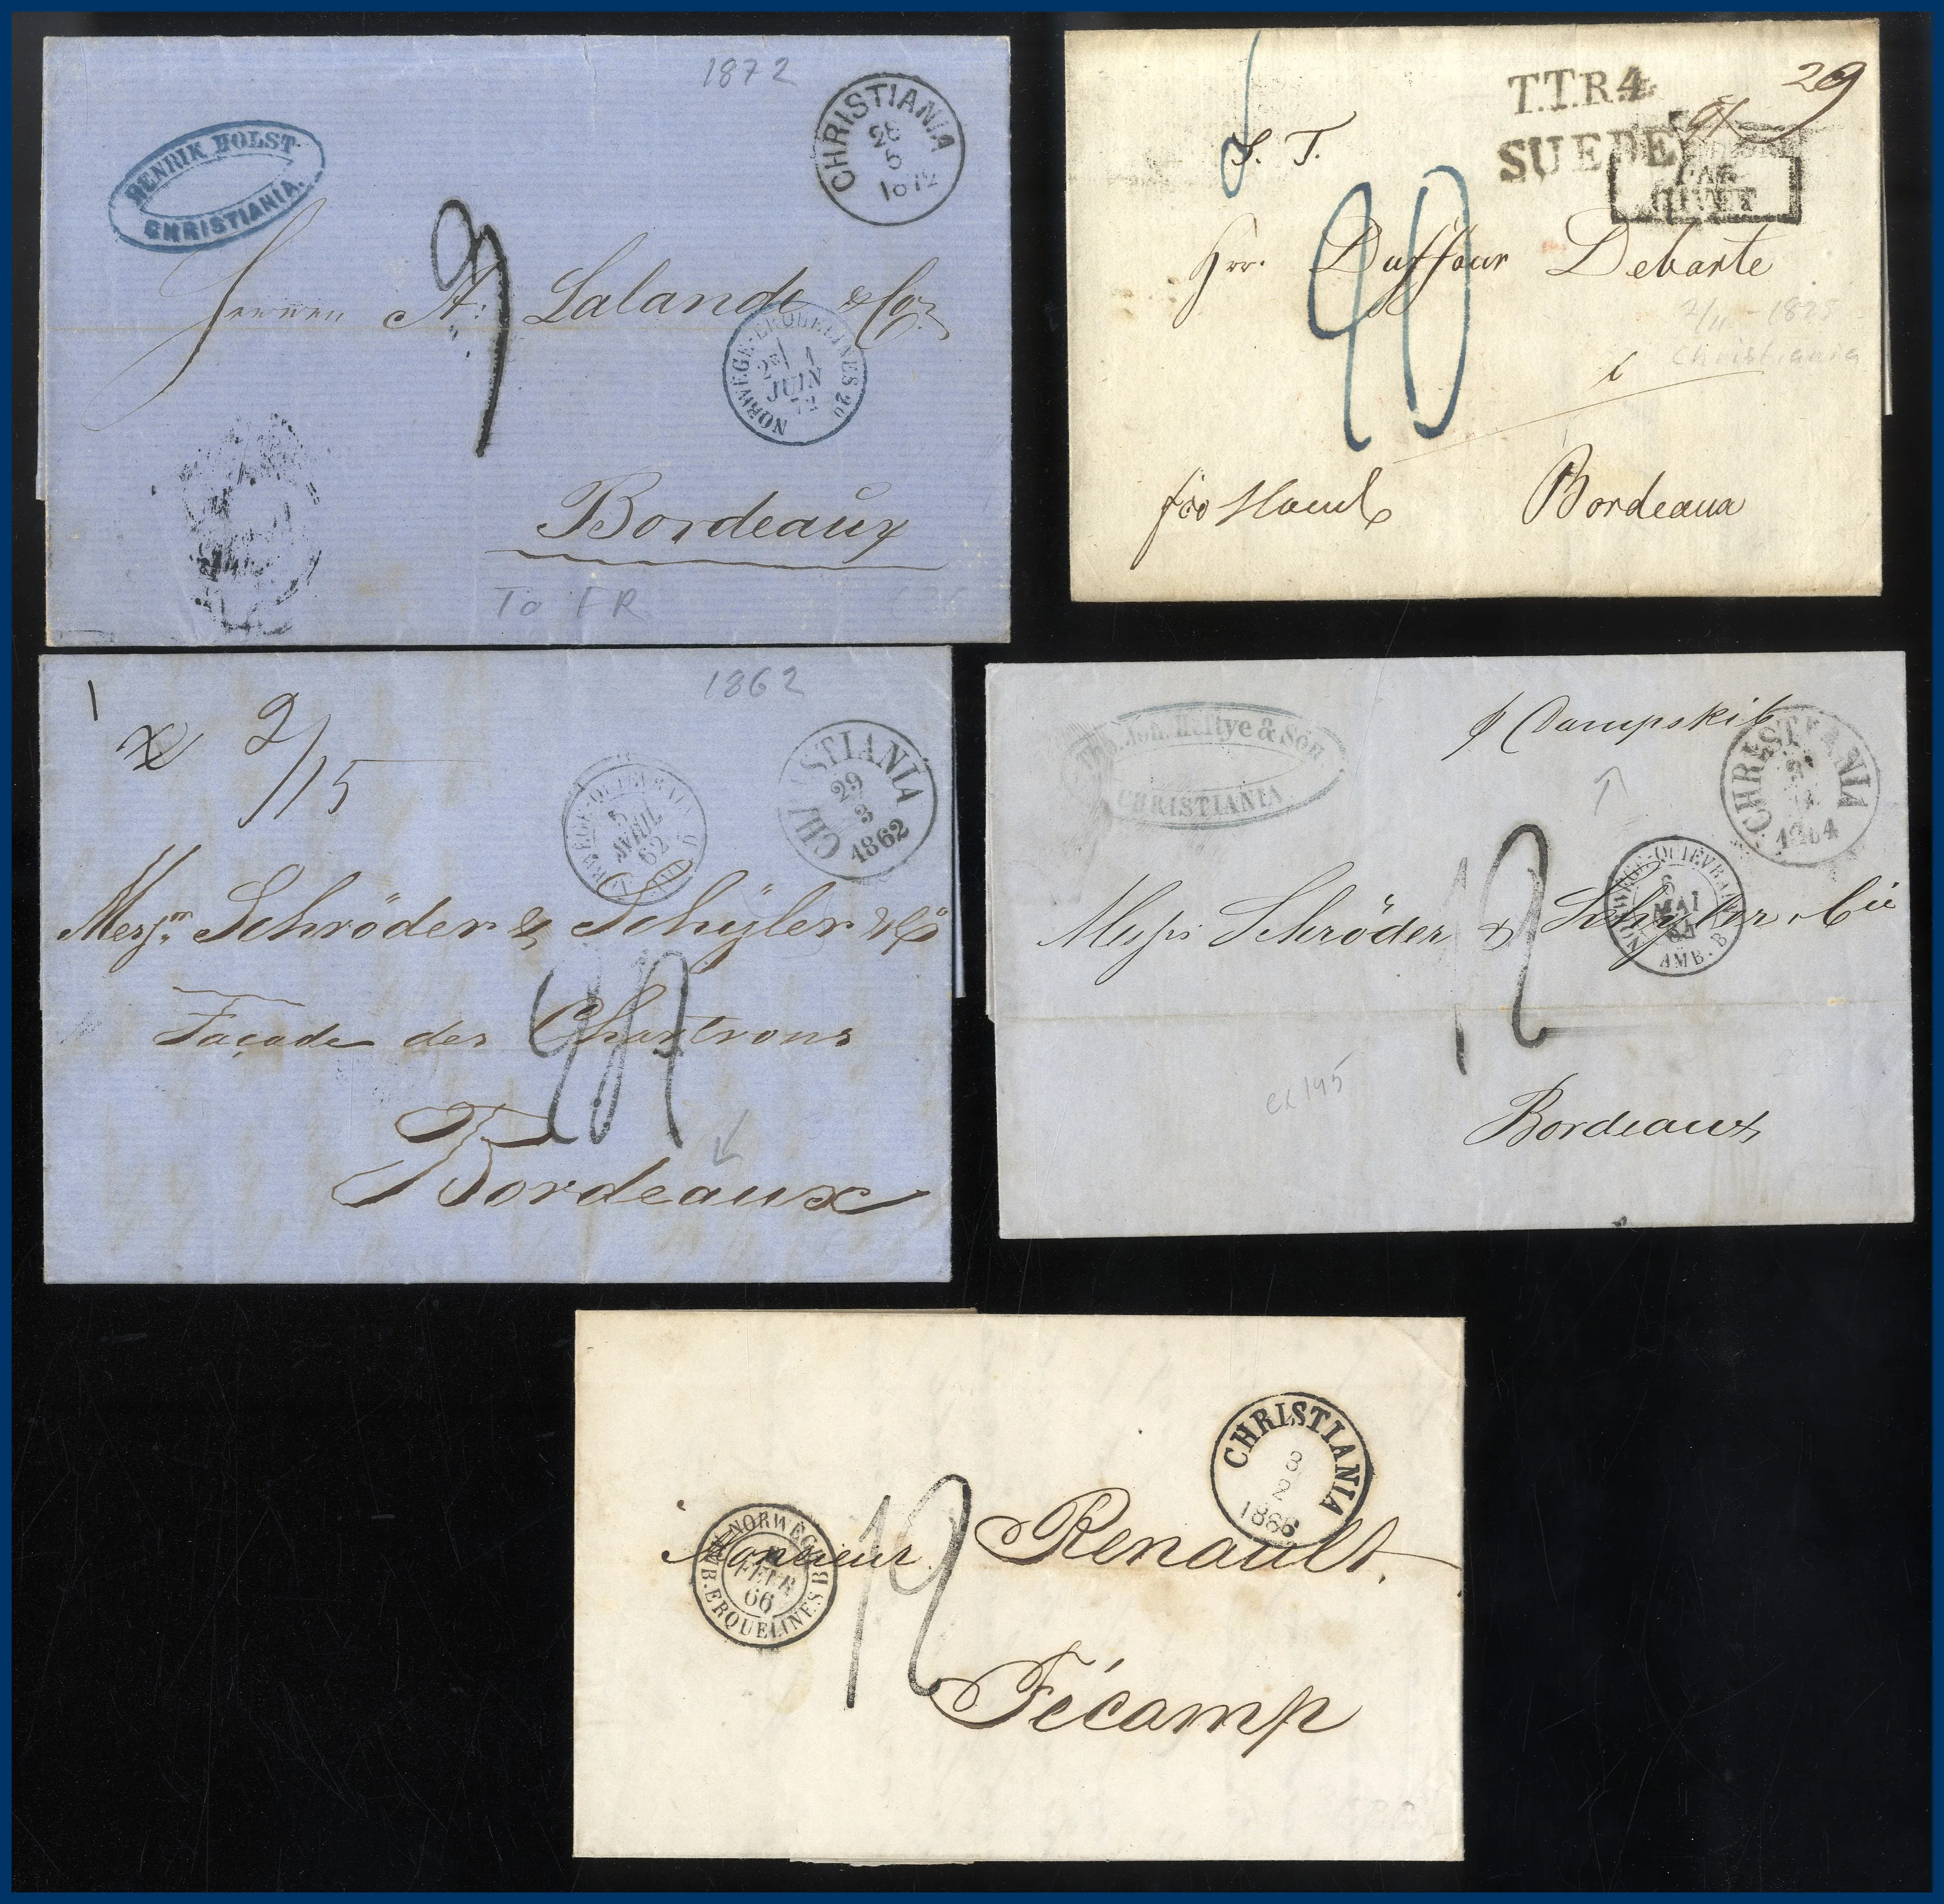 1872
HENRIK HOLST.
CHRISTIANIA.
CHRISTIANIA
28
5
1872
9
A. Lalande & Co.
NORWEGE-ERQUELINES 20
2E
1
JUIN
72
Bordeaux
To FR
T.T.R.4.
SUEDE
29
PAR
GIVET
S. T.
Hrr. Duffour Debarte
40
1825
Christiania
Bordeaux
1862
1
x 2/15
CHRISTIANIA
29
3
1862
5
AVRIL
62
Messrs Schröder & Schÿler & Co
Façade des Chartrons
Bordeaux
Tho. Joh. Heftye & Søn
CHRISTIANIA.
p Dampskib
CHRISTIANIA
1864
NORWEGE-QUIEVRAIN
MAI
64
AMB. B
Messrs Schröder & Schyler & Cie
12
ex 145
Bordeaux
CHRISTIANIA
8
2
1866
NORWEGE
FEVR
66
AMB. ERQUELINES B
12
Monsieur Renault.
Fécamp